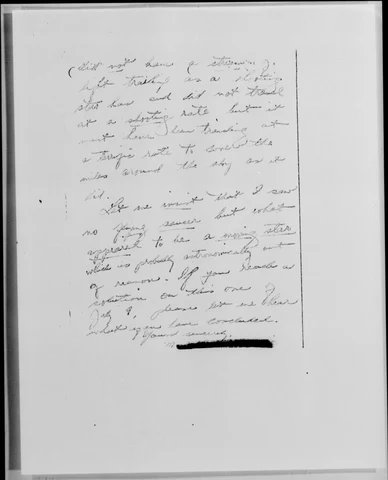 (Did not have a streaming
light trailing as a shooting
star has and did not travel
at a shooting rate but it
must have been traveling at
a terrific rate to cover the
miles around the sky as it
did.
Let me insist that I saw
no flying saucer but what
appeared to be a moving star
which is probably astronomically out
of reason. If you reach a
on this one of
July 9, please let me hear
what you have concluded.
Yours sincerely,